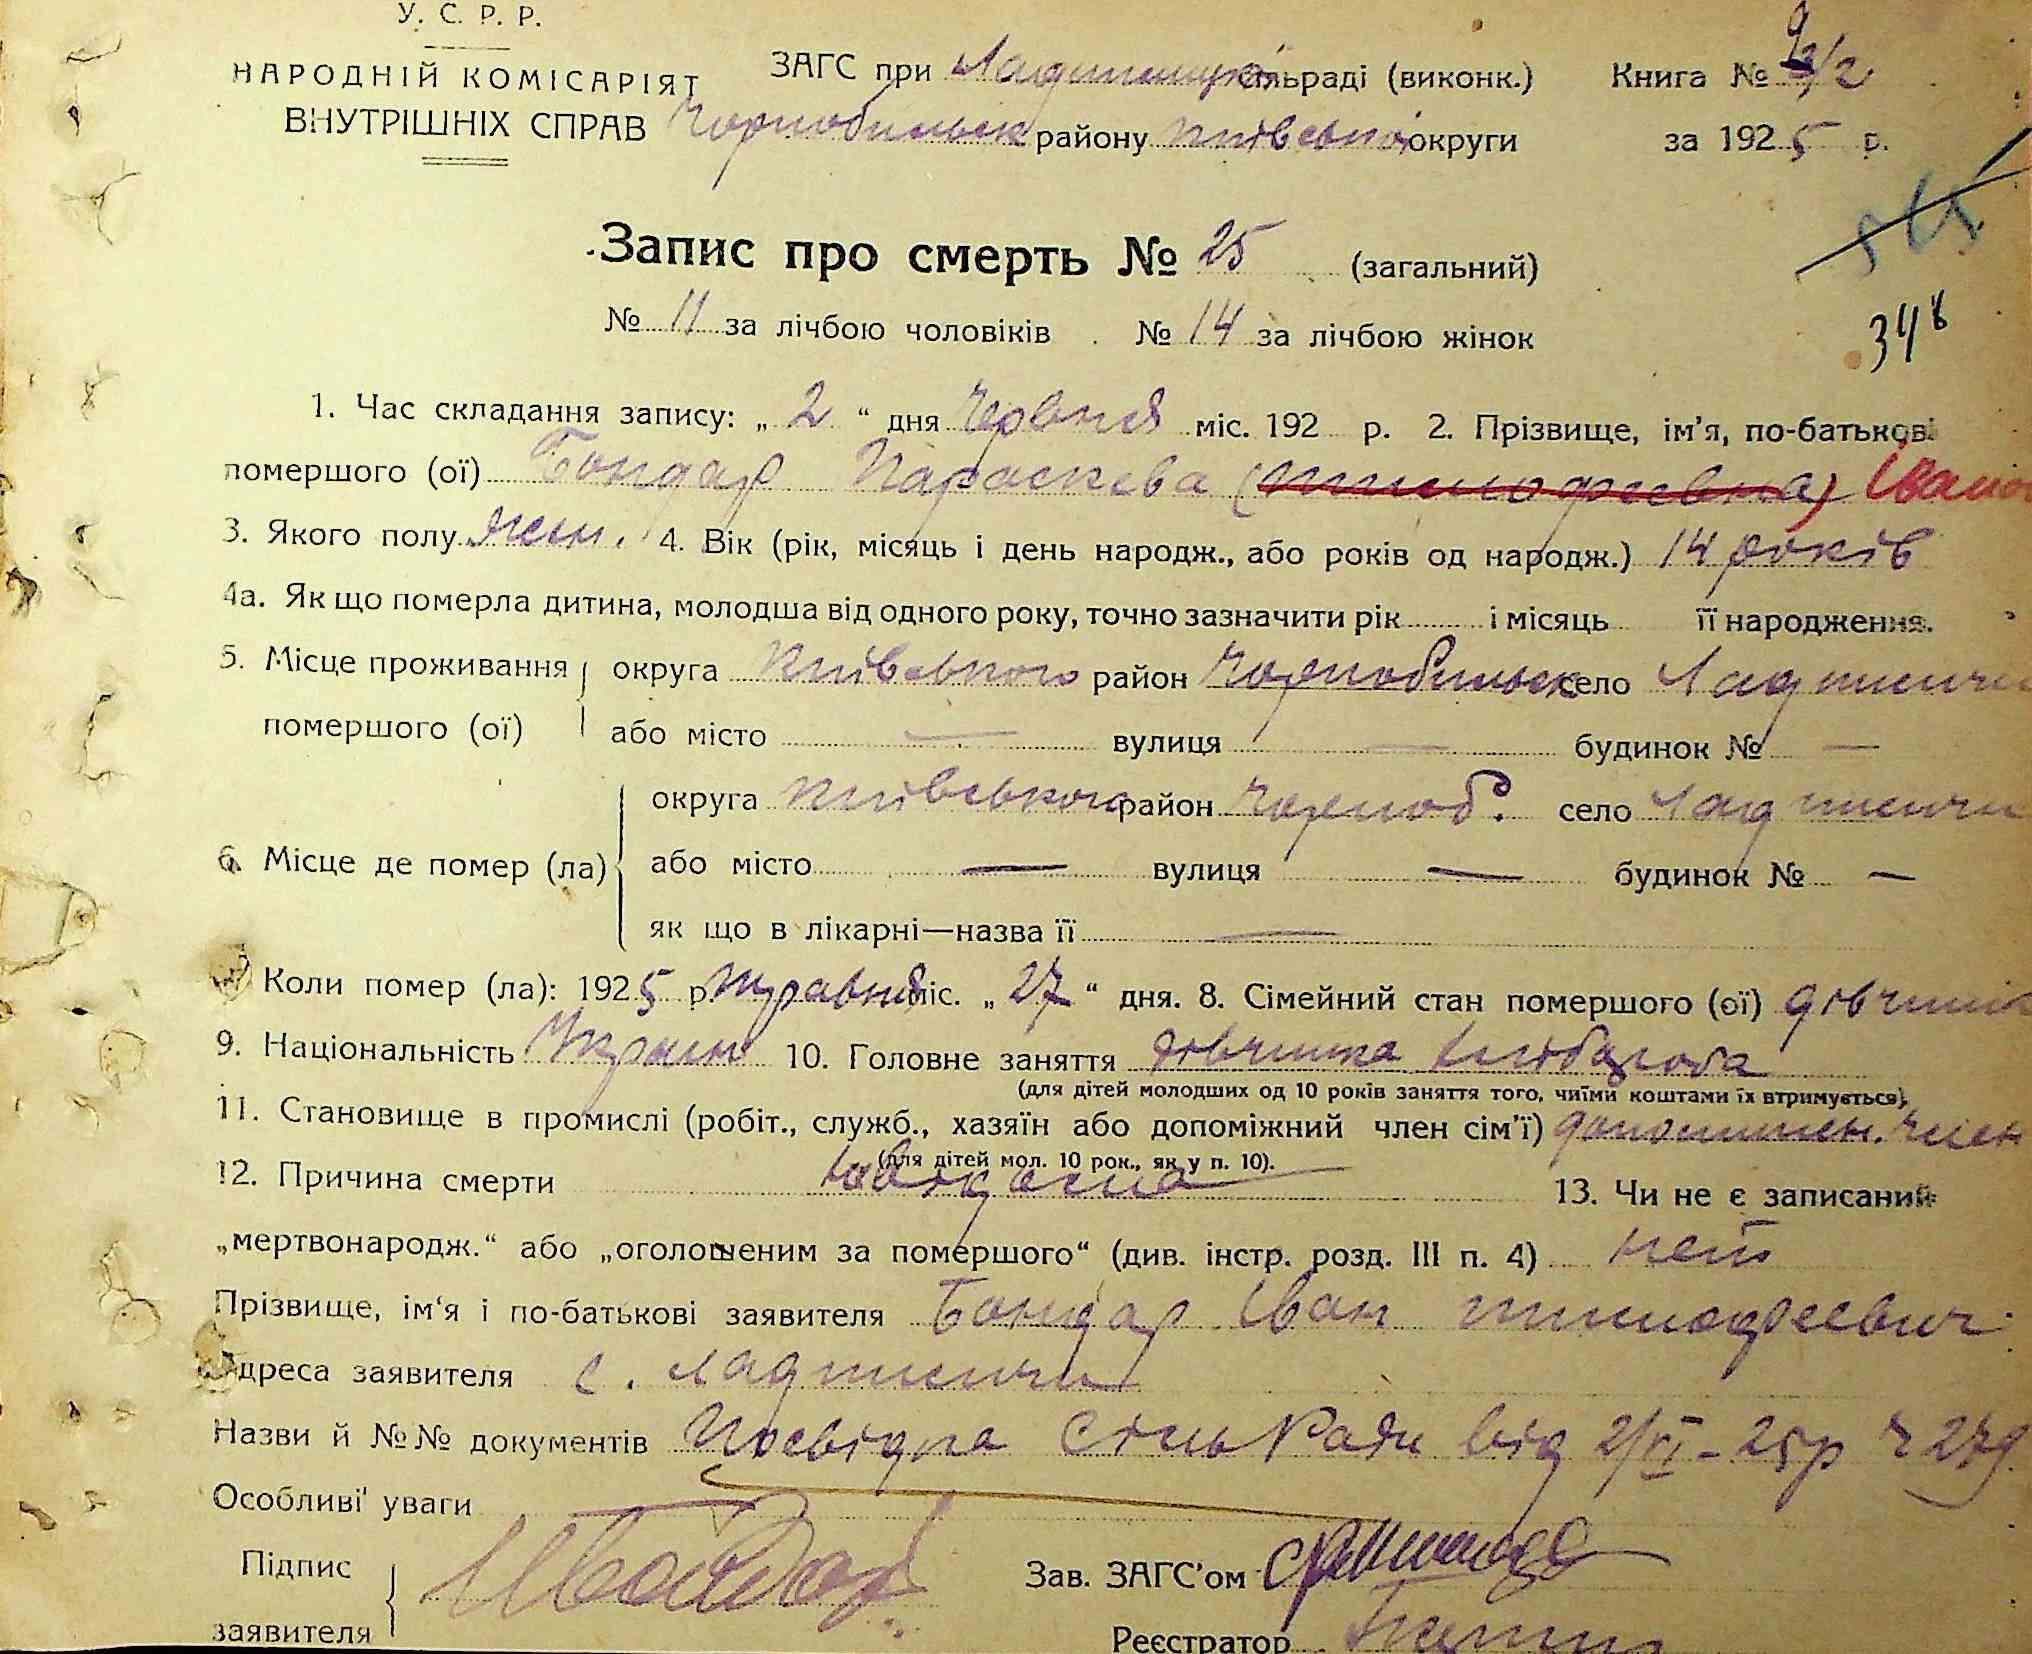 У. С. Р. Р.
НАРОДНІЙ КОМІСАРІЯТ
ВНУТРІШНІХ СПРАВ
ЗАГС при Ладижицькій сільраді (виконк.) Книга № 2
Чорнобильськ району Київської округи за 1925 р.
Запис про смерть № 25 (загальний)
№ 11 за лічбою чоловіків № 14 за лічбою жінок
348
1. Час складання запису: „ 2 “ дня червня міс. 192 р. 2. Прізвище, ім’я, по-батькові
помершого (ої) Бондар Параскева (тимофіевна) Івано
3. Якого полу жен. 4. Вік (рік, місяць і день народж., або років од народж.) 14 років
4а. Як що померла дитина, молодша від одного року, точно зазначити рік і місяць її народження.
5. Місце проживання помершого (ої) округа Київського район Чорнобильск село Ладижичи
або місто — вулиця — будинок № —
6. Місце де помер (ла) округа Київського район Чорноб. село Ладижичи
або місто — вулиця — будинок № —
як що в лікарні—назва її —
Коли помер (ла): 1925 р. травня міс. „ 27 “ дня. 8. Сімейний стан помершого (ої) дівчина
9. Національність Україн 10. Головне заняття дівчина хлібороба
(для дітей молодших од 10 років заняття того, чиїми коштами їх втримується)
11. Становище в промислі (робіт., служб., хазяїн або допоміжний член сім’ї) допоміжн. член
(для дітей мол. 10 рок., як у п. 10).
12. Причина смерти 13. Чи не є записаний
„мертвонародж.“ або „оголошеним за помершого“ (див. інстр. розд. III п. 4) нет
Прізвище, ім‘я і по-батькові заявителя Бондар Іван тимофеевич
Адреса заявителя с. Ладижичи
Назви й №№ документів Посвідка СільРади від 2/VI - 25р ч 279
Особливі уваги
Підпис заявителя ИБондар
Зав. ЗАГС’ом
Реєстратор